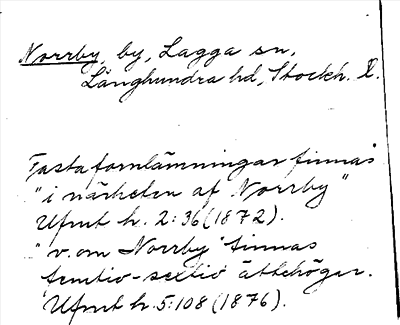 Norrby, by, Lagga sn,
Långhundra hd, Stockh. L.
Fasta fornlämningar finnas
"i närheten af Norrby"
Ufmt h. 2:36 (1872).
"v. om Norrby finnas
femtio-sextio ättehögar.
Ufmt h. 5:108 (1876).